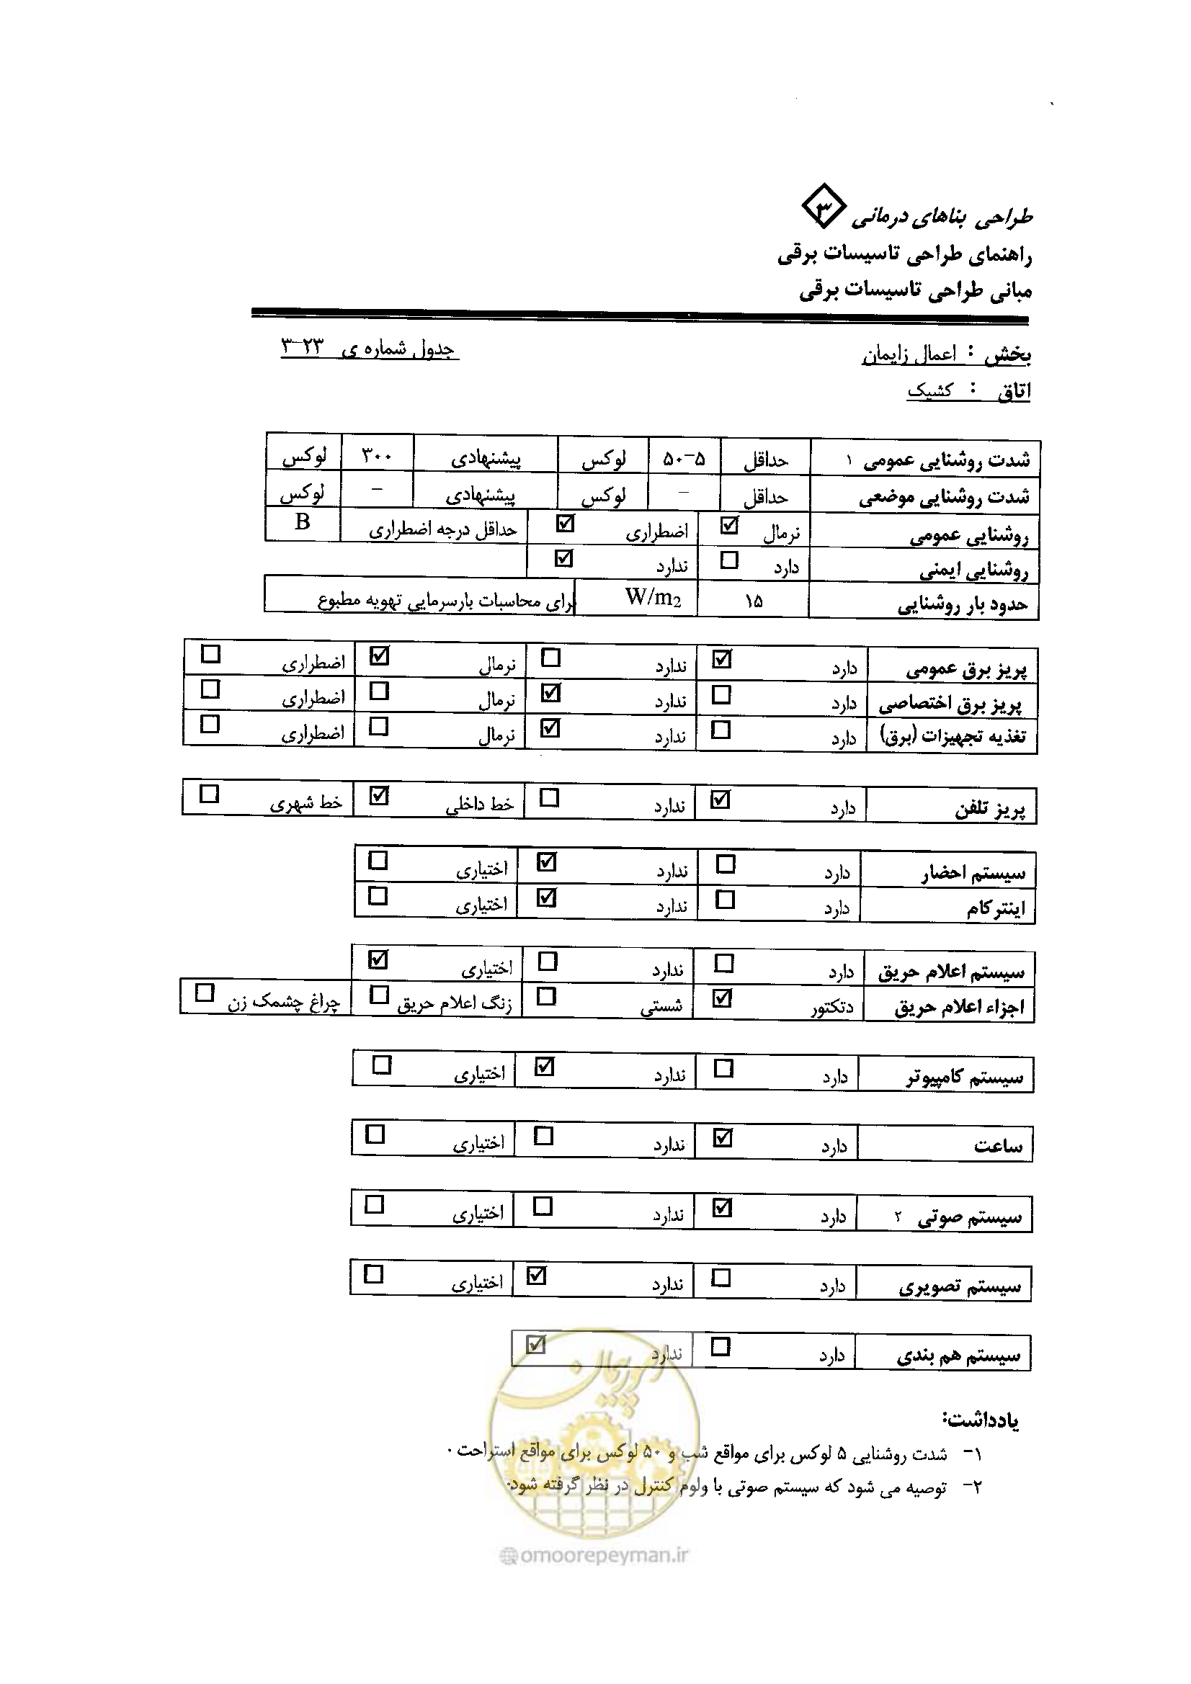 طراحی بناهای درمانی ۳
راهنمای طراحی تاسیسات برقی
مبانی طراحی تاسیسات برقی
بخش : اعمال زایمان جدول شماره ی ۲۳-۳
اتاق : کشیک
شدت روشنایی عمومی ۱ حداقل ۵-۵۰ لوکس پیشنهادی ۳۰۰ لوکس
شدت روشنایی موضعی حداقل - لوکس پیشنهادی - لوکس
روشنایی عمومی نرمال ☑ اضطراری ☑ حداقل درجه اضطراری B
روشنایی ایمنی دارد ☐ ندارد ☑
حدود بار روشنایی ۱۵ W/m2 برای محاسبات بارسرمایی تهویه مطبوع
پریز برق عمومی دارد ☑ ندارد ☐ نرمال ☑ اضطراری ☐
پریز برق اختصاصی دارد ☐ ندارد ☑ نرمال ☐ اضطراری ☐
تغذیه تجهیزات (برق) دارد ☐ ندارد ☑ نرمال ☐ اضطراری ☐
پریز تلفن دارد ☑ ندارد ☐ خط داخلی ☑ خط شهری ☐
سیستم احضار دارد ☐ ندارد ☑ اختیاری ☐
اینترکام دارد ☐ ندارد ☑ اختیاری ☐
سیستم اعلام حریق دارد ☐ ندارد ☐ اختیاری ☑
اجزاء اعلام حریق دتکتور ☑ شستی ☐ زنگ اعلام حریق ☐ چراغ چشمک زن ☐
سیستم کامپیوتر دارد ☐ ندارد ☑ اختیاری ☐
ساعت دارد ☑ ندارد ☐ اختیاری ☐
سیستم صوتی ۲ دارد ☑ ندارد ☐ اختیاری ☐
سیستم تصویری دارد ☐ ندارد ☑ اختیاری ☐
سیستم هم بندی دارد ☐ ندارد ☑
امور پیمان
یادداشت:
۱- شدت روشنایی ۵ لوکس برای مواقع شب و ۵۰ لوکس برای مواقع استراحت .
۲- توصیه می شود که سیستم صوتی با ولوم کنترل در نظر گرفته شود.
@omoorepeyman.ir